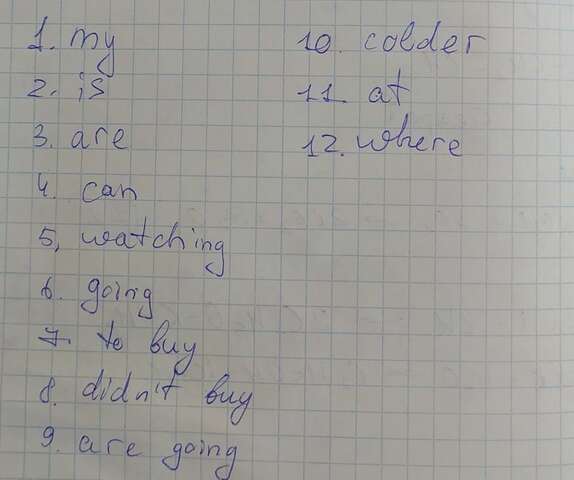 1. my
2. is
3. are
4. can
5, watching
6. going
7. to buy
8. didn't buy
9. are going
10. colder
11. at
12. where